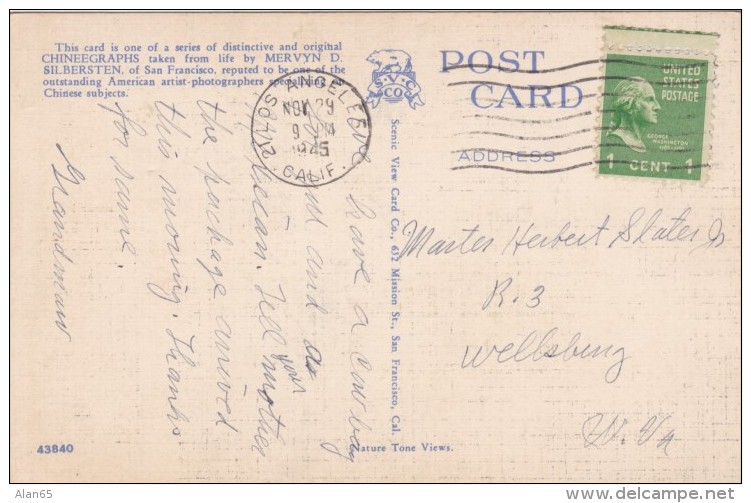 This card is one of a series of distinctive and original
CHINEEGRAPHS taken from life by MERVYN D.
SILBERSTEN, of San Francisco, reputed to be one of the
outstanding American artist-photographers specializing in
Chinese subjects.
S.V.C.
CO
POST
CARD
ADDRESS
UNITED
STATES
POSTAGE
GEORGE
WASHINGTON
1 CENT 1
LOS ANGELES
NOV 29
9 PM
1945
CALIF.
have a cowboy
and
Tell your mother
the package arived
this moving. Thanks
for same.
Grandmaw
Scenic View Card Co., 632 Mission St., San Francisco, Cal.
Master Herbert Slater Jr
R. 3
Wellsburg
W. Va
43840
Nature Tone Views.
Alan65
delcampe.net